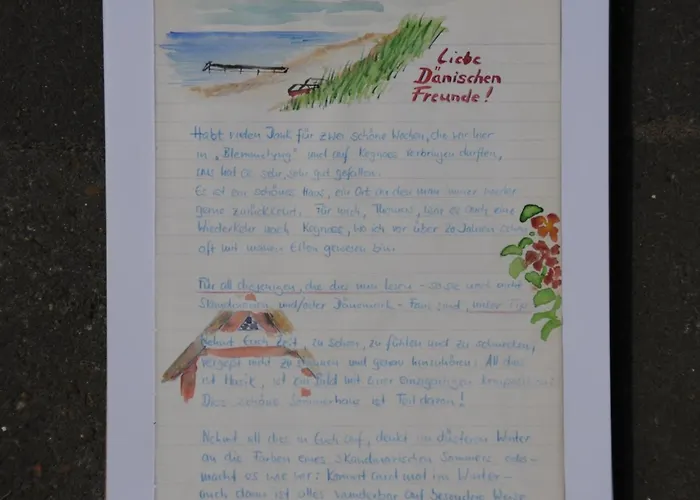 Liebe
Dänischen
Freunde!
Habt vielen Dank für zwei schöne Wochen, die wir hier
in und auf Kegnaes verbringen durften,
uns hat es sehr, sehr gut gefallen.
Es ist ein schönes Haus, ein Ort an den man immer wieder
gerne zurückkehrt. Für mich, Thomas, war es auch eine
Wiederkehr nach Kegnaes, wo ich vor über 20 Jahren
oft mit meinen Eltern gewesen bin.
Für all diejenigen, die dies nun lesen - so sie noch nicht
Skandinavien und/oder Dänemark - Fan sind, unser Tip
Nehmt Euch Zeit, zu sehen, zu fühlen und zu schmecken,
vergeßt nicht zu staunen und genau hinzuhören: All dies
ist Musik, ist ein Bild mit einer einzigartigen
Dies schöne Sommerhaus ist Teil davon!
Nehmt all dies in Euch auf, denkt im düsteren Winter
an die Farben eines Skandinavischen Sommers oder
macht es wie wir: Kommt auch mal im Winter -
auch dann ist alles wunderbar auf besondere Weise